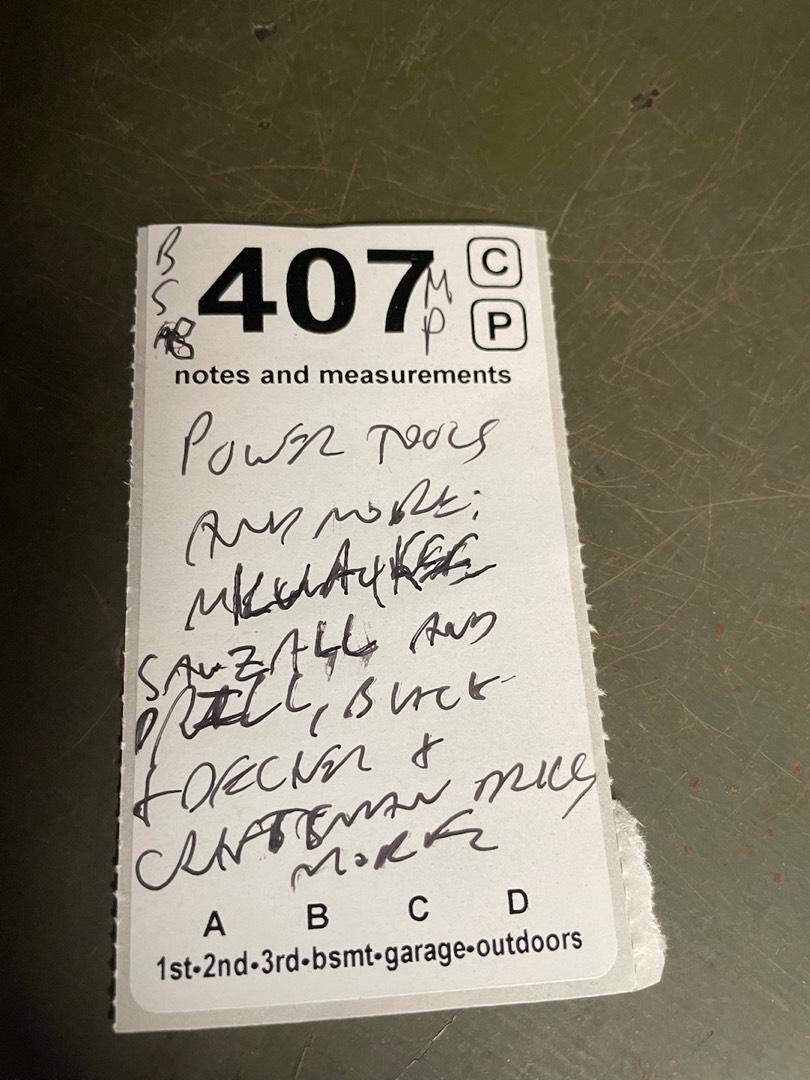 B
S
407
M
P
C
P
notes and measurements
POWER TOOLS
AND MORE:
MILWAUKEE
SAWZALL AND
DRILL, BLACK
+ DECKER &
CRAFTSMAN DRILLS
A B C D
1st•2nd•3rd•bsmt•garage•outdoors